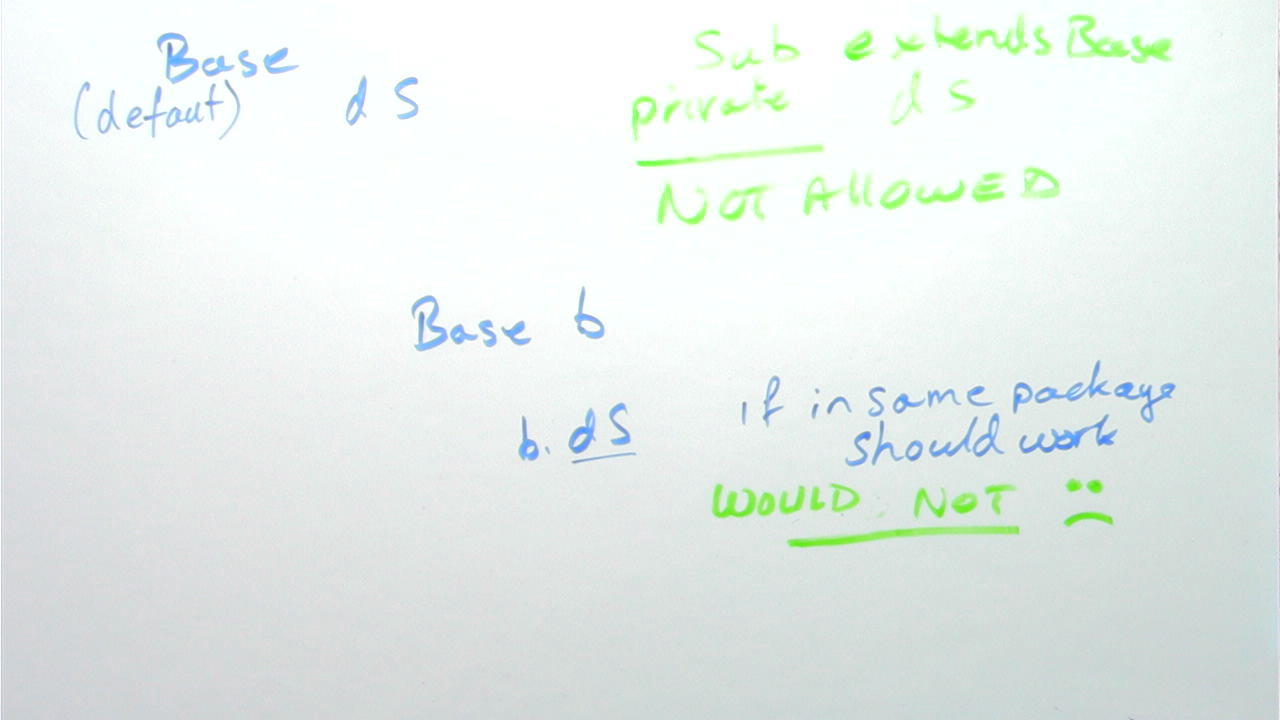 Base
(defaut) dS
Sub extends Base
private dS
NOT AllOWED
Base b
b. dS
if in same package
should work
WOULD NOT